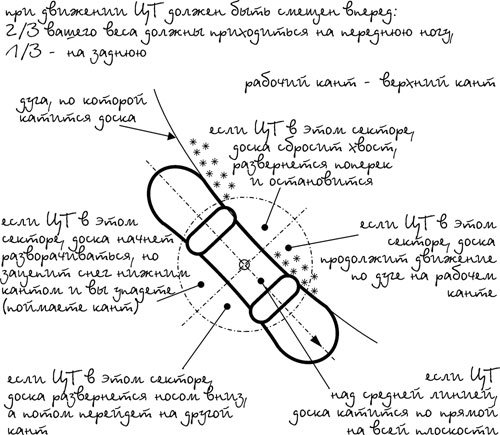 при движении ЦТ должен быть смещен вперед:
2/3 вашего веса должны приходиться на переднюю ногу,
1/3 - на заднюю
рабочий кант - верхний кант
дуга, по которой
катится доска
если ЦТ в этом секторе,
доска сбросит хвост,
развернется поперек
и остановится
если ЦТ в этом
секторе, доска начнет
разворачиваться, но
зацепит снег нижним
кантом и вы упадете
(поймаете кант)
если ЦТ в этом
секторе, доска
продолжит движение
по дуге на рабочем
канте
если ЦТ в этом секторе,
доска развернется носом вниз,
а потом перейдет на другой
кант
если ЦТ
над средней линией,
доска катится по прямой
на всей плоскости